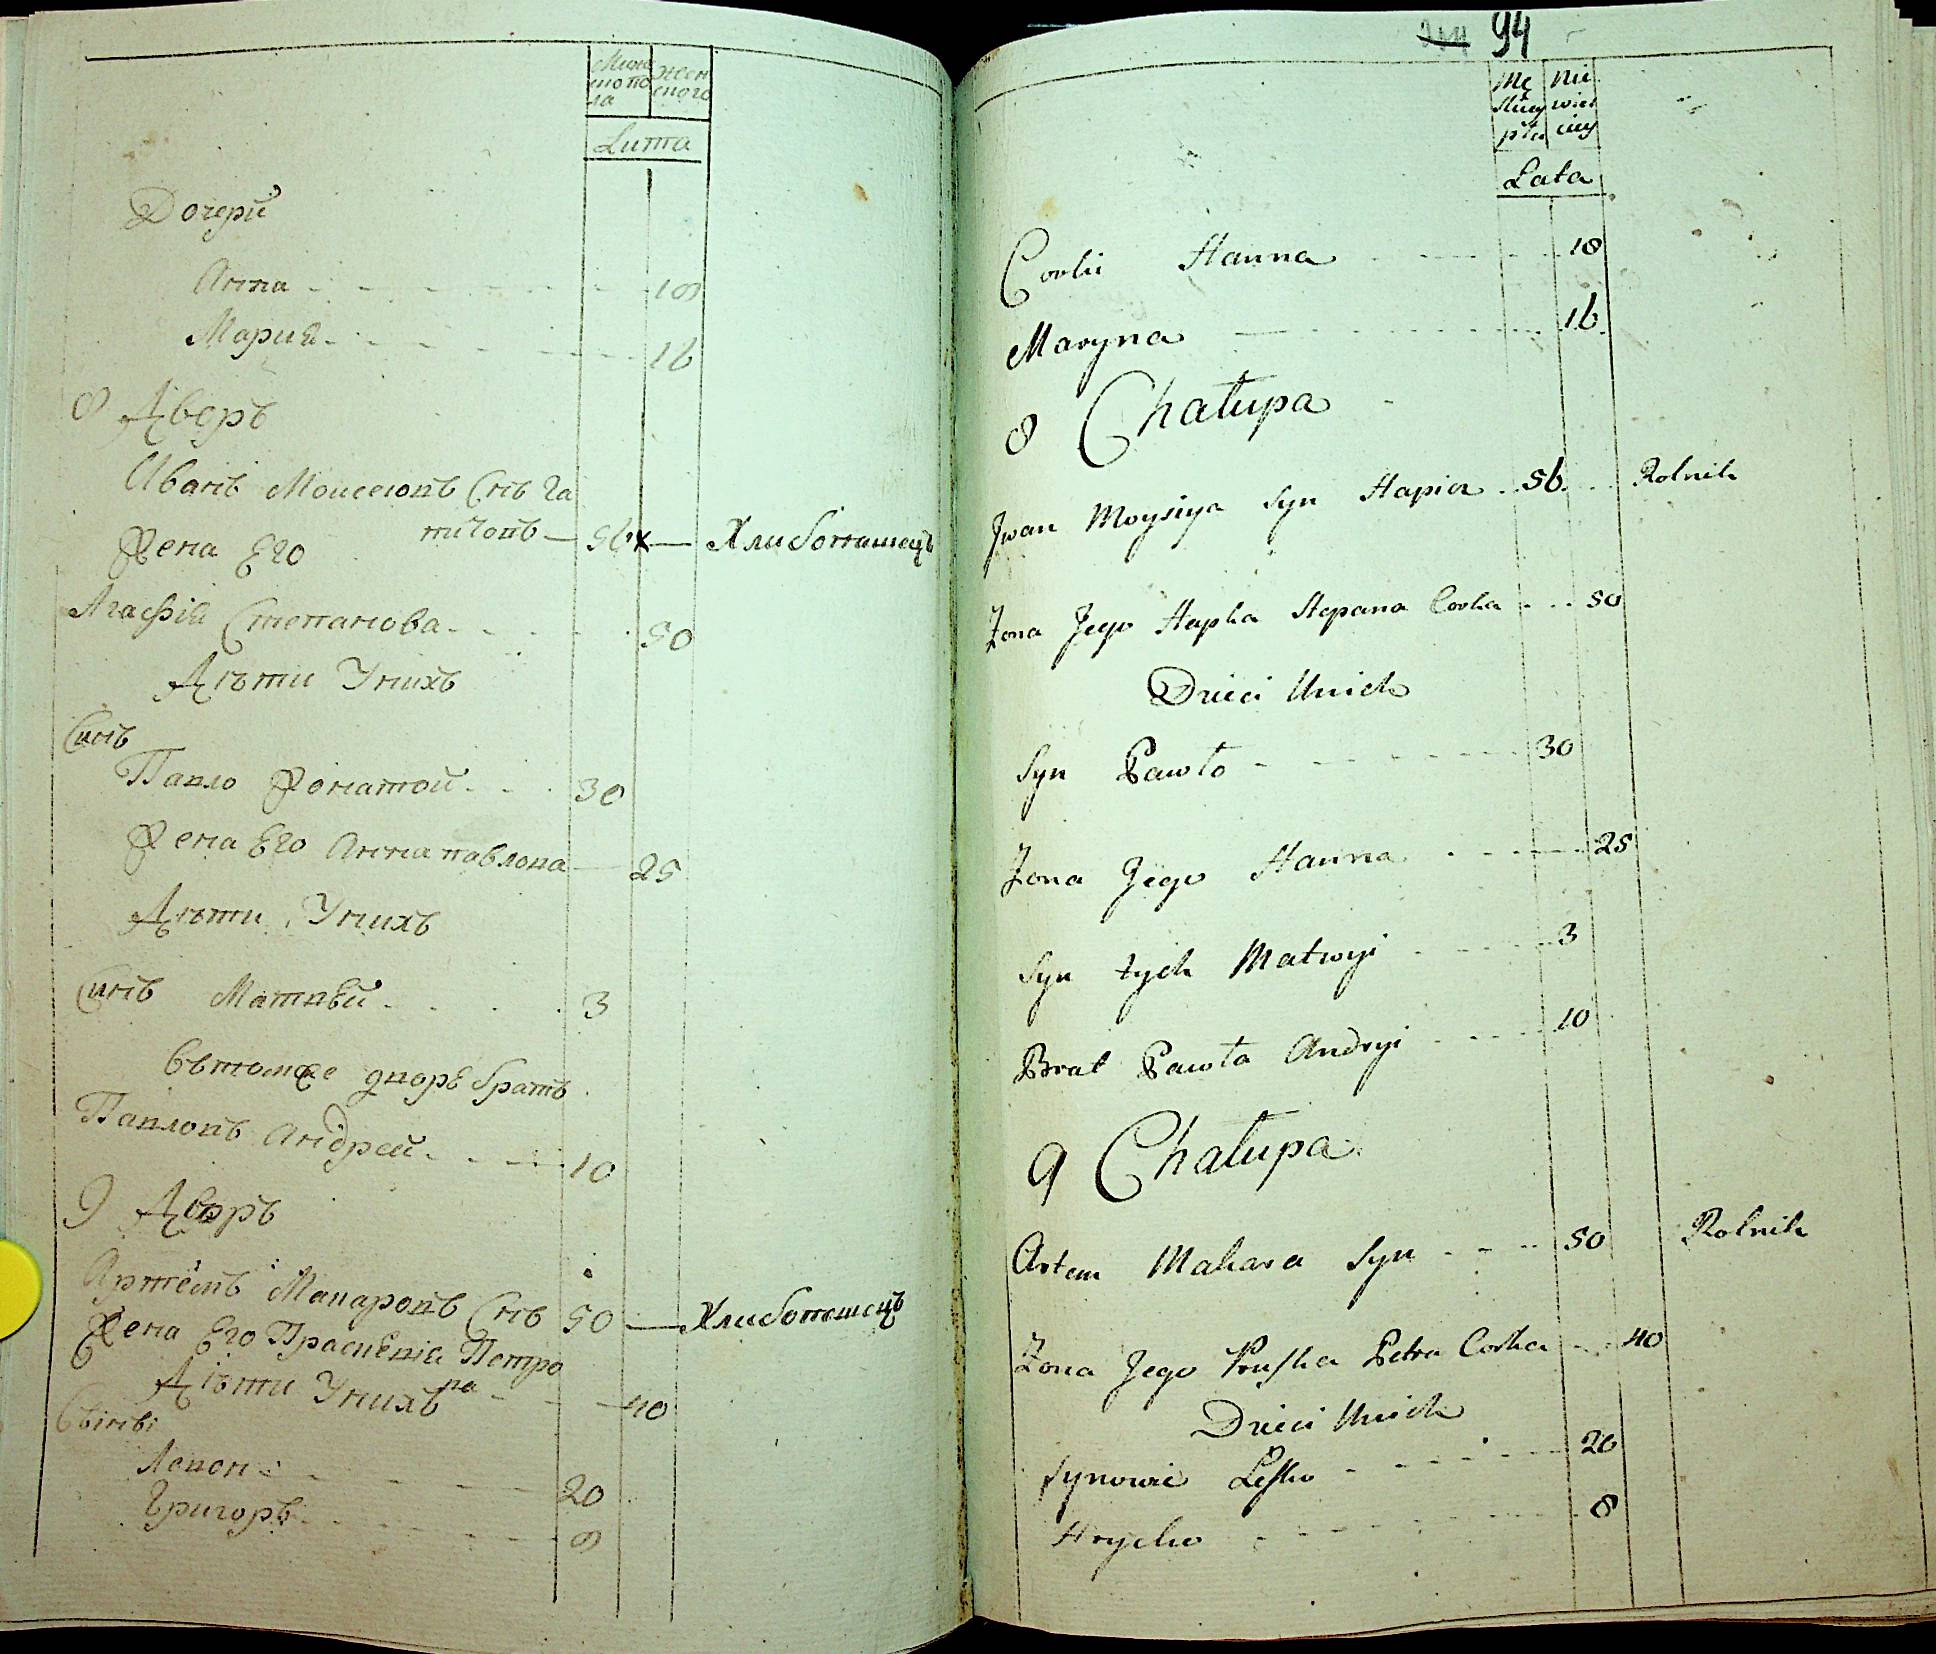 Мужескпола
женского
Лѣта
Дочери
Анна 18
Мариа 16
8 Дворъ
Иванъ Моисеювъ Снъ Га
56 Хлибопашецъ
Жена Его
Агафiя Степанова 50
Дѣти Унихъ
Синъ
Павло Жонатой 30
Жена Его Анна павлова 25
Дѣти Унихъ
Синъ Матвѣй 3
Вътомже дворѣ братъ
Павловъ Андрей 10
9 Дворъ
Артёмъ Макаровъ Снъ 50 Хлибопашецъ
Жена Его Праскѣвiя Петро
ва 40
Дѣти Унихъ
Сыны
Григоръ 8
20
94
Mę
skiey
płci
Nie
wies
ciey
Lata
Corki Hanna 18
Maryna 16
8 Chałupa
Jwan Moysieya Syn Hapion 56 Rolnik
Zona Jego Hapka Stepana Corka 50
Dzieci Unich
Syn Pawło 30
Zona Jego Hanna 25
Syn tych Matwyi 3
Brat Pawła Andryi 10
9 Chałupa
Artem Makara Syn 50 Rolnik
Zona Jego Pruska Petra Corka 40
Dzieci Unich
Synowie Lesko 20
Hrycko 8